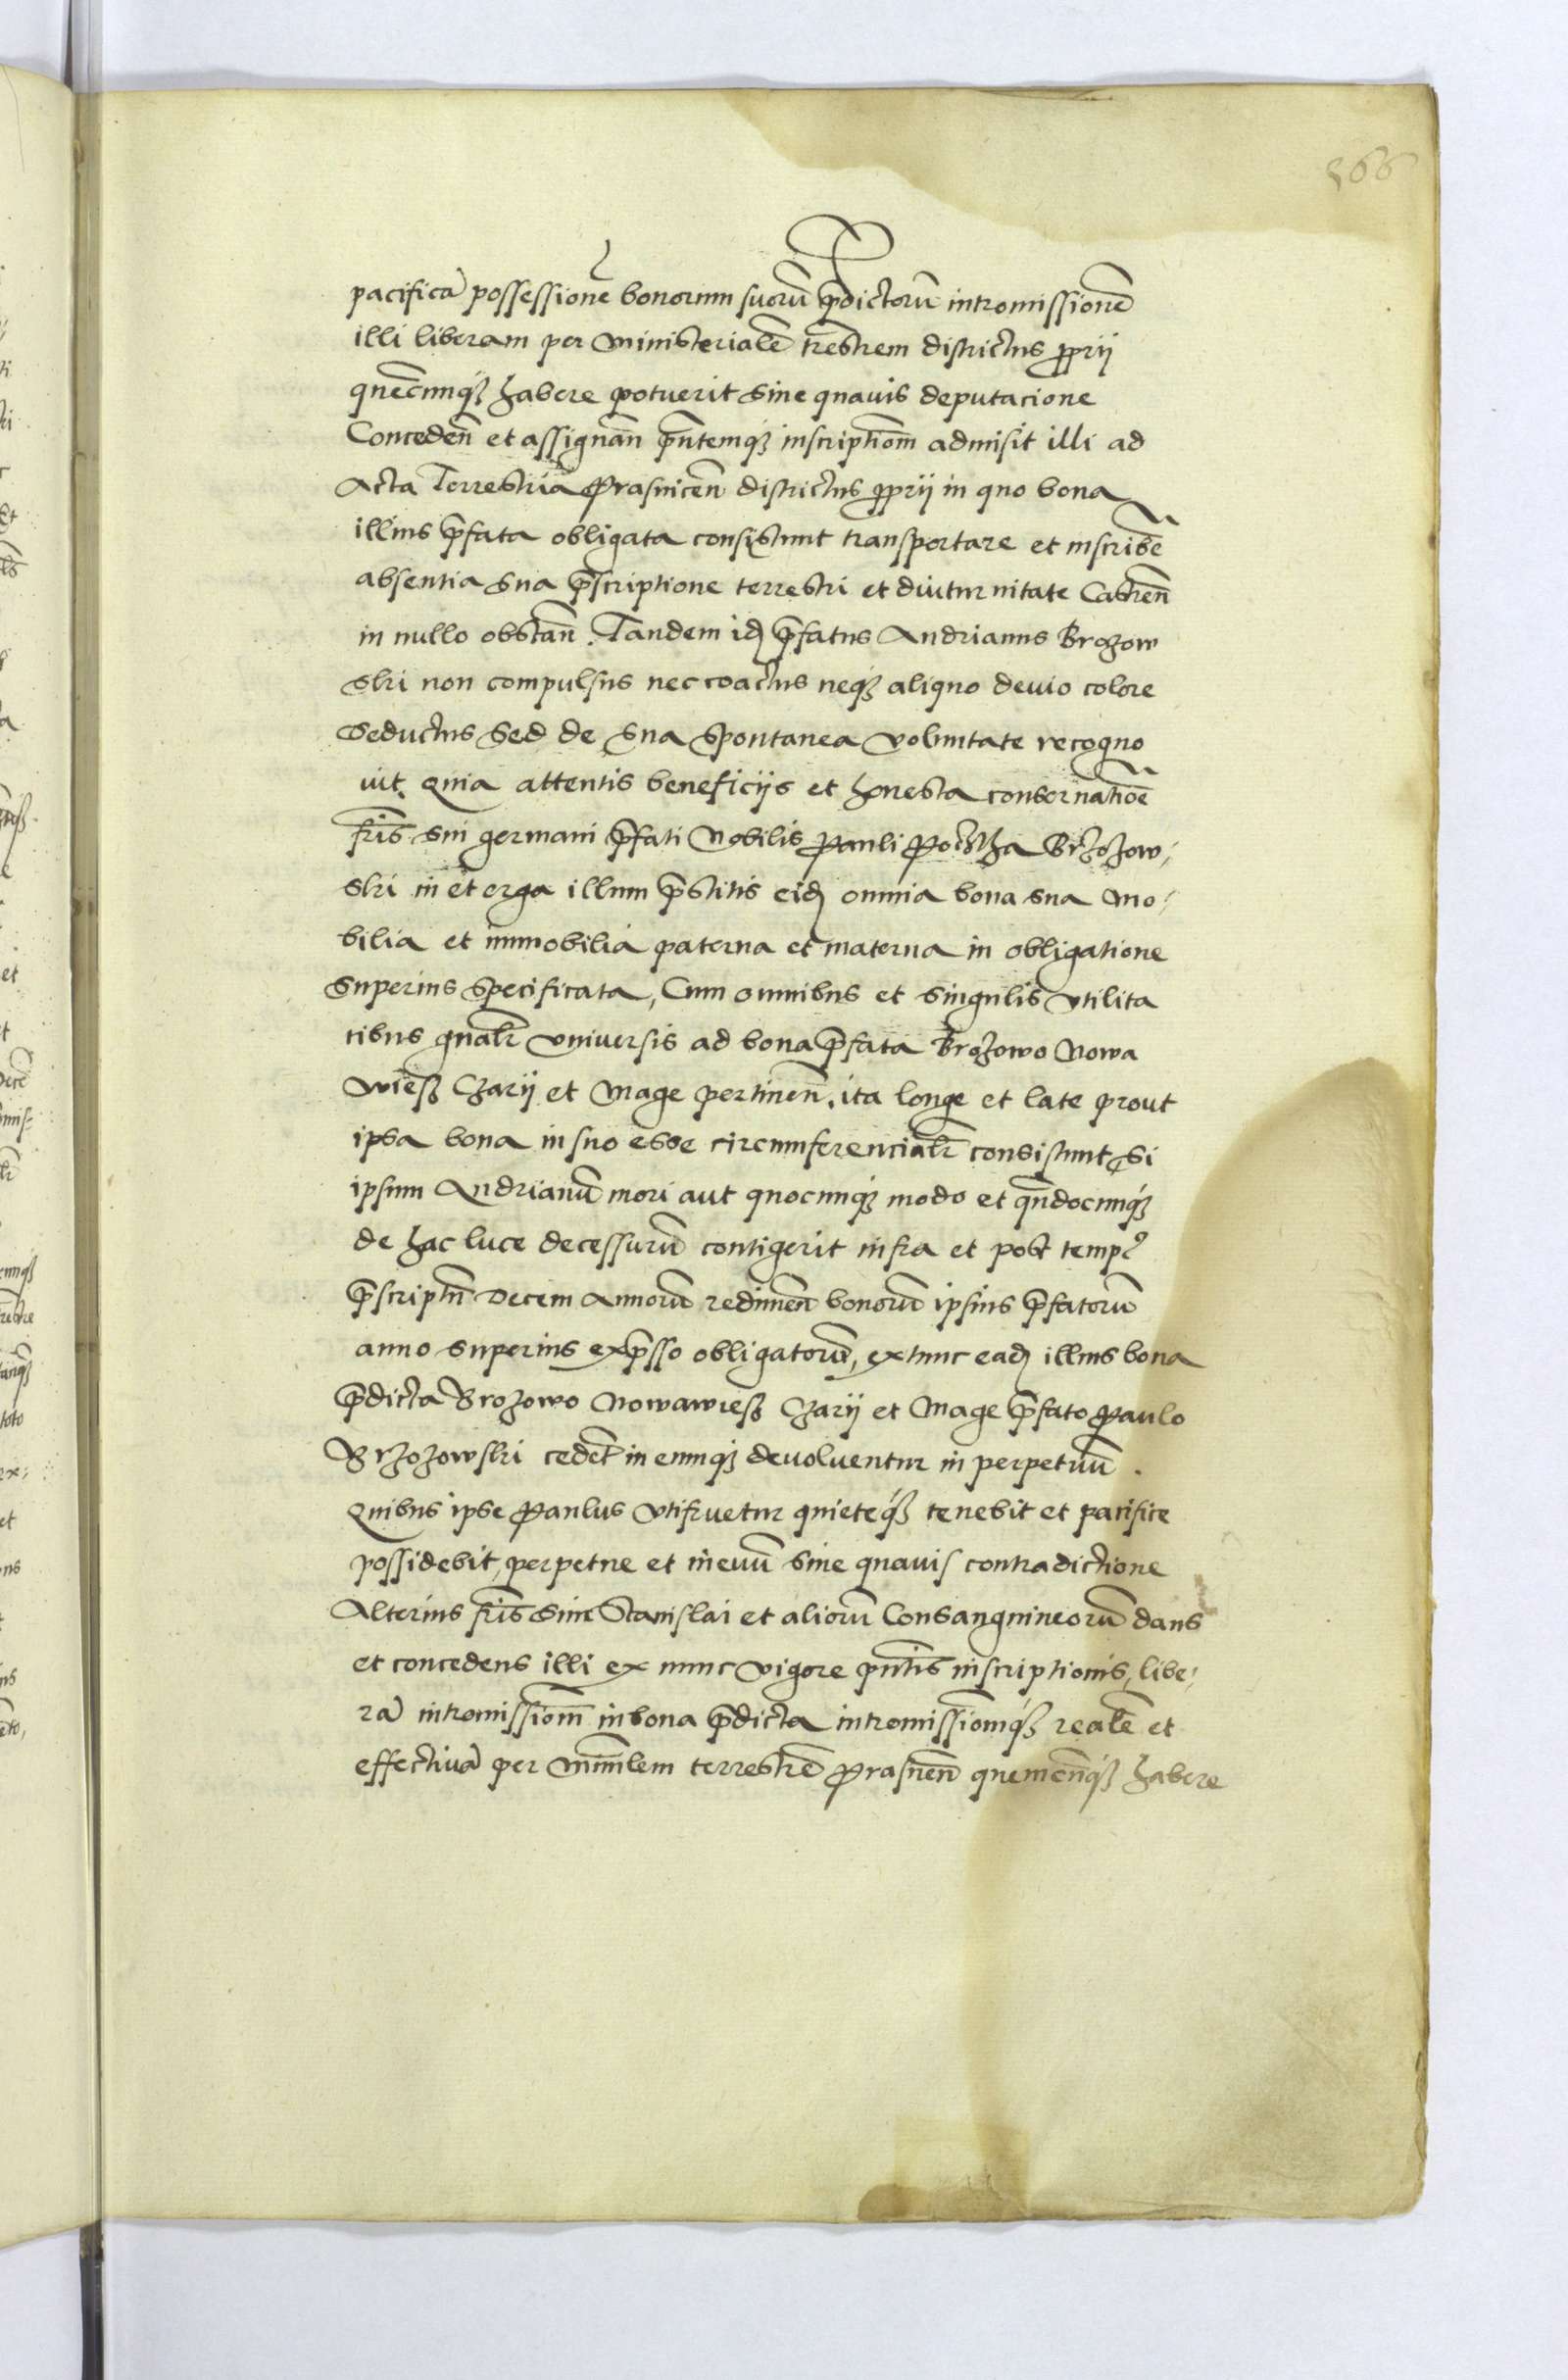 366
pacificā possessionē bonorum suorū p̄dictorū intromissionē
illi liberam per Ministerialē tr̄estrem districtus p̱prij
quēcunqȝ habere potuerit sine quauis deputacione
Conceden̄ et assignan̄ p̄ntemqȝ inscriptiōm admisit illi ad
Acta Terrestria Prasnicen̄ districtus p̱prij in quo bona
illius p̄fata obligata consistunt transportare et inscribē
absentia sua p̄scriptione terrestri et diuturnitate Castren̄
in nullo obstan̄. Tandem idȝ p̄fatus Andrianus Brozow
ski non compulsus nec coactus neqȝ aliquo deuio colore
Seductus Sed de sua spontanea voluntate recogno
uit. Quia attentis beneficijs et honesta conseruatiōe
fr̄is sui germani p̄fati Nobilis Pauli Brzozow-
ski in et erga illum p̄stitis eidȝ omnia bona sua mo-
bilia et immobilia paterna et materna in obligatione
Superius specificata, Cum omnibus et singulis vtilita
tibus gn̄alr̄ vniuersis ad bona p̄fata Brozowo Nowa
wiesz Czarij et Mage pertinen̄. ita longe et late prout
ipsa bona in suo esse circumferencialr̄ consistunt, Si
ipsum Andrianū mori aut quocunqȝ modo et qn̄docunqȝ
de hac luce decessurū contigerit infra et post tempꝰ
p̄scriptū Decem Annorū redimen̄ bonorū ipsius p̄fatorū
anno superius exp̄sso obligatorū, extunc eadȝ illius bona
p̄dicta Brozowo Nowawiesz Czarij et Mage p̄fato Paulo
Brzozowski cedēt in eumqȝ deuoluentur in perpetuū.
Quibus ipse Paulus vtifruetur quieteqȝ tenebit et pacifice
possidebit, perpetue et in euū sine quauis contradictione
Alterius fr̄is sui Stanislai et aliorū Consanguineorū dans
et concedens illi ex nunc vigore pn̄tis inscriptionis, libe-
rā intromissiōm in bona p̄dicta intromissiōmqȝ realē et
effectiuā per Mīnlem terrestrē Prasnen̄ quemcūqȝ habere